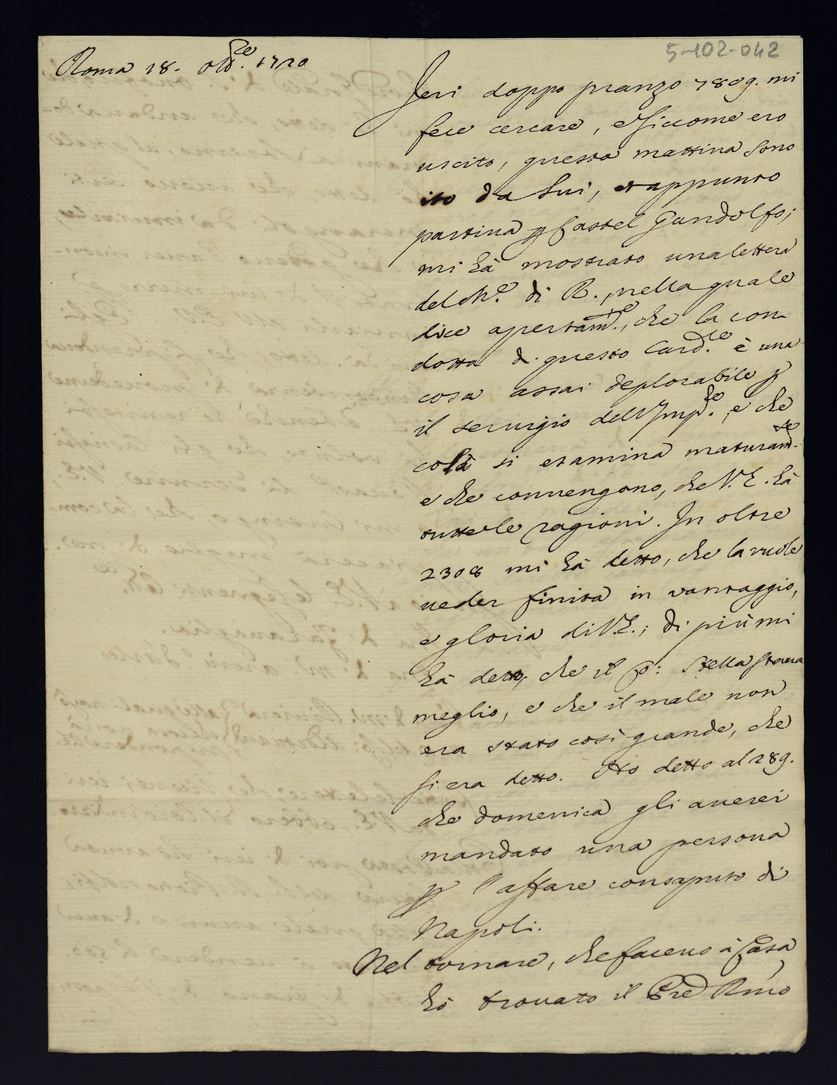 5-102-042
Roma 18. Ott.re 1720
Jeri doppo pranzo 789. mi
fece cercare, e siccome ero
uscito, questa mattina sono
ito da Lui, et appunto
partiva p Castel Gandolfo;
mi hà mostrato una lettera
del M.o di R., nella quale
dice apertam.te, che la con
dotta di questo Card.le è una
cosa assai deplorabile p
il seruigio dell'Imp.re, e che
colà si esamina maturam.te
e che conuengono, che V.E. hà
tutte le ragioni. In oltre
2308 mi hà detto, che la vuole
ueder finita in vantaggio,
e gloria di V.E.; di più mi
hà detto, che il P: Stella staua
meglio, e che il male non
era stato così grande, che
si era detto. Ho detto al 289.
che domenica gli auerei
mandato una persona
p l'affare consaputo di
Napoli.
Nel tornare, che faceuo à Casa
hò trouato il Pre Rmo